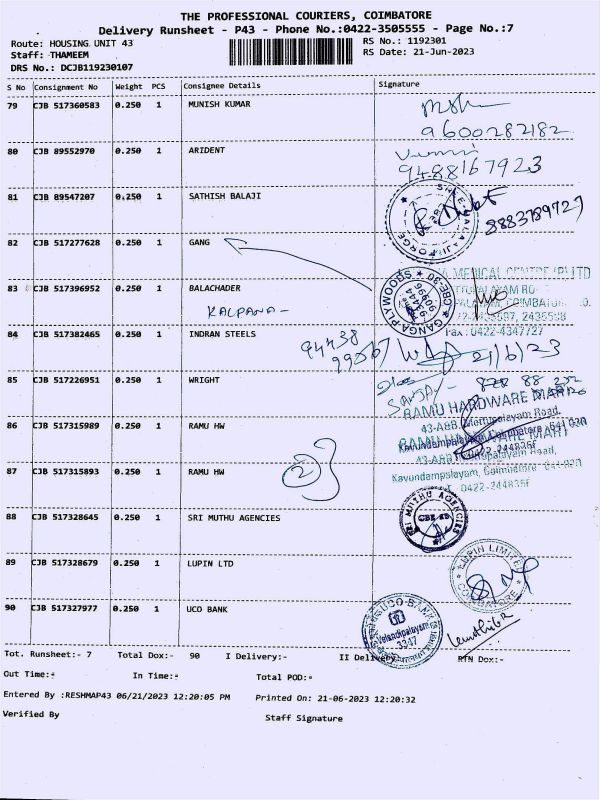 THE PROFESSIONAL COURIERS, COIMBATORE
Delivery Runsheet - P43 - Phone No.:0422-3505555 - Page No.:7
Route: HOUSING UNIT 43
RS No.: 1192301
Staff: THAMEEM
RS Date: 21-Jun-2023
DRS No.: DCJB119230107
S No Consignment No Weight PCS Consignee Details Signature
79 CJB 517360583 0.250 1 MUNISH KUMAR
9600282182
80 CJB 89552970 0.250 1 ARIDENT
9488167923
81 CJB 89547207 0.250 1 SATHISH BALAJI
8883789727
82 CJB 517277628 0.250 1 GANG
GANGA PLYWOODS CBE-30
MEDICAL CENTRE (P) LTD
83 CJB 517396952 0.250 1 BALACHADER
KALPANA -
Fax: 0422-4347727
84 CJB 517382465 0.250 1 INDRAN STEELS
94438
99067 21/6/23
85 CJB 517226951 0.250 1 WRIGHT
RAMU HARDWARE MART
86 CJB 517315989 0.250 1 RAMU HW
Kavundampalayam, Coimbatore - 641 030
87 CJB 517315893 0.250 1 RAMU HW
2
Kavundampalayam, Coimbatore - 641 030
88 CJB 517328645 0.250 1 SRI MUTHU AGENCIES
SRI MUTHU AGENCIES
89 CJB 517328679 0.250 1 LUPIN LTD
LUPIN LIMITED
COIMBATORE
90 CJB 517327977 0.250 1 UCO BANK
UCO BANK
Velandipalayam
Tot. Runsheet:- 7 Total Dox:- 90 I Delivery:- II Delivery:- RTN Dox:-
Out Time:- In Time:- Total POD:-
Entered By :RESHMAP43 06/21/2023 12:20:05 PM Printed On: 21-06-2023 12:20:32
Verified By Staff Signature